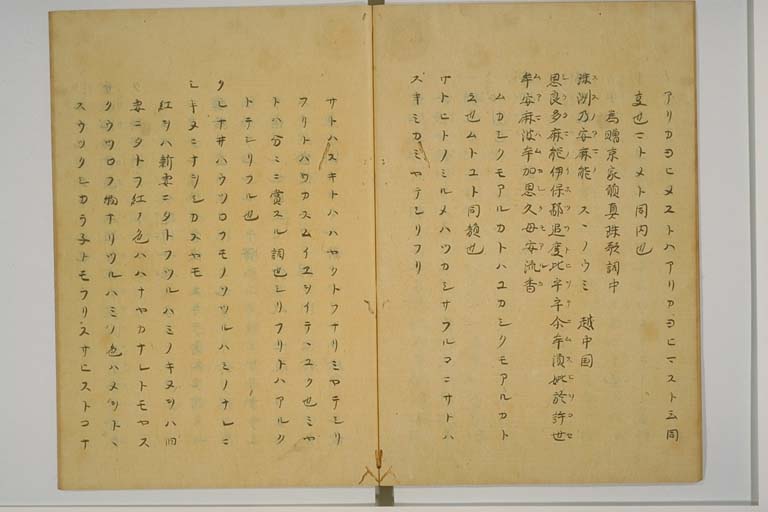 アリカヨヒメストハアリカヨヒマスト云同
事也マトメト同内也
為贈京家願真珠歌詞中
珠洲乃安麻能 スヽノウミ 越中国
思良多麻能伊保都追度比
牟安麻波牟加思久母安流香
ムカシクモアルカトハユカシクモアルカト
云也ムトユト同韻也
サトヒトノミルメハツカシサフルコニサトハ
スキミカミヤテシリフリ
サトハスキトハハヤクトフナリミヤテシリ
フリトハワカスムイエヲイテヽユク也ミヤ
トハ分ニ賞スル詞也シリフリトハアルク
トテシリフル也
クレナヰハウツロフモノソツルハミノナレニ
シキヌニナヲシカスヤモ
紅ヲハ新妻ニタトフツルハミノキヌヲハ旧
妻ニタトフ紅ノ色ハハナヤカナレトモヤス
クウツロフ物ナリツルハミノ色ハ
スウツクシカラネトモフリスサヒストコナ